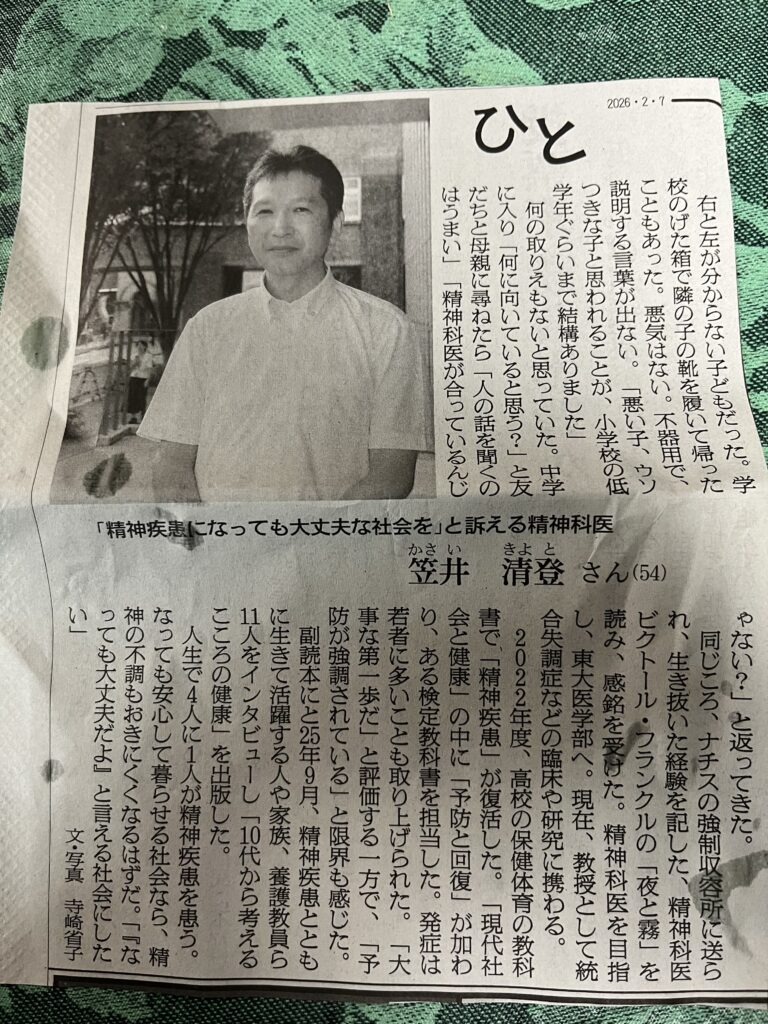 2026・2・7
ひと
右と左が分からない子どもだった。学
校のげた箱で隣の子の靴を履いて帰った
こともあった。悪気はない。不器用で、
説明する言葉が出ない。「悪い子、ウソ
つきな子と思われることが、小学校の低
学年ぐらいまで結構ありました」
何の取りえもないと思っていた。中学
に入り「何に向いていると思う?」と友
だちと母親に尋ねたら「人の話を聞くの
はうまい」「精神科医が合っているんじ
「精神疾患になっても大丈夫な社会を」と訴える精神科医
かさい きよと
笠井 清登 さん(54)
ゃない?」と返ってきた。
同じころ、ナチスの強制収容所に送ら
れ、生き抜いた経験を記した、精神科医
ビクトール・フランクルの「夜と霧」を
読み、感銘を受けた。精神科医を目指
し、東大医学部へ。現在、教授として統
合失調症などの臨床や研究に携わる。
2022年度、高校の保健体育の教科
書で「精神疾患」が復活した。「現代社
会と健康」の中に「予防と回復」が加わ
り、ある検定教科書を担当した。発症は
若者に多いことも取り上げられた。「大
事な第一歩だ」と評価する一方で、「予
防が強調されている」と限界も感じた。
副読本にと25年9月、精神疾患ととも
に生きて活躍する人や家族、養護教員ら
11人をインタビューし「10代から考える
こころの健康」を出版した。
人生で4人に1人が精神疾患を患う。
なっても安心して暮らせる社会なら、精
神の不調もおきにくくなるはずだ。「『な
っても大丈夫だよ』と言える社会にした
い」
文・写真 寺崎省子